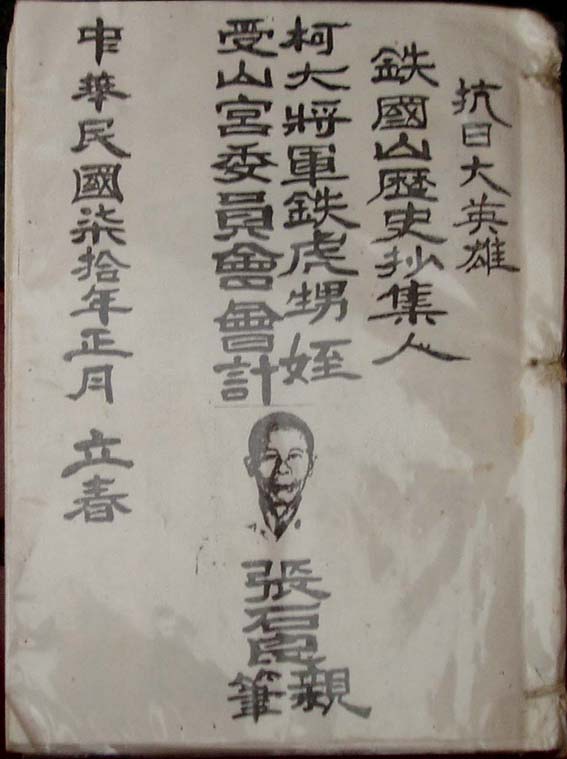 抗日大英雄
鉄國山歷史抄集人
柯大將軍鉄虎甥姪
受山宮委員會會計
張石親筆
中華民國柒拾年正月 立春